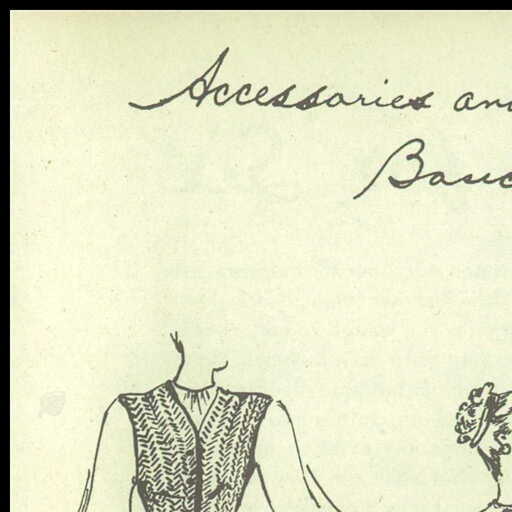 Accessories an
Basic